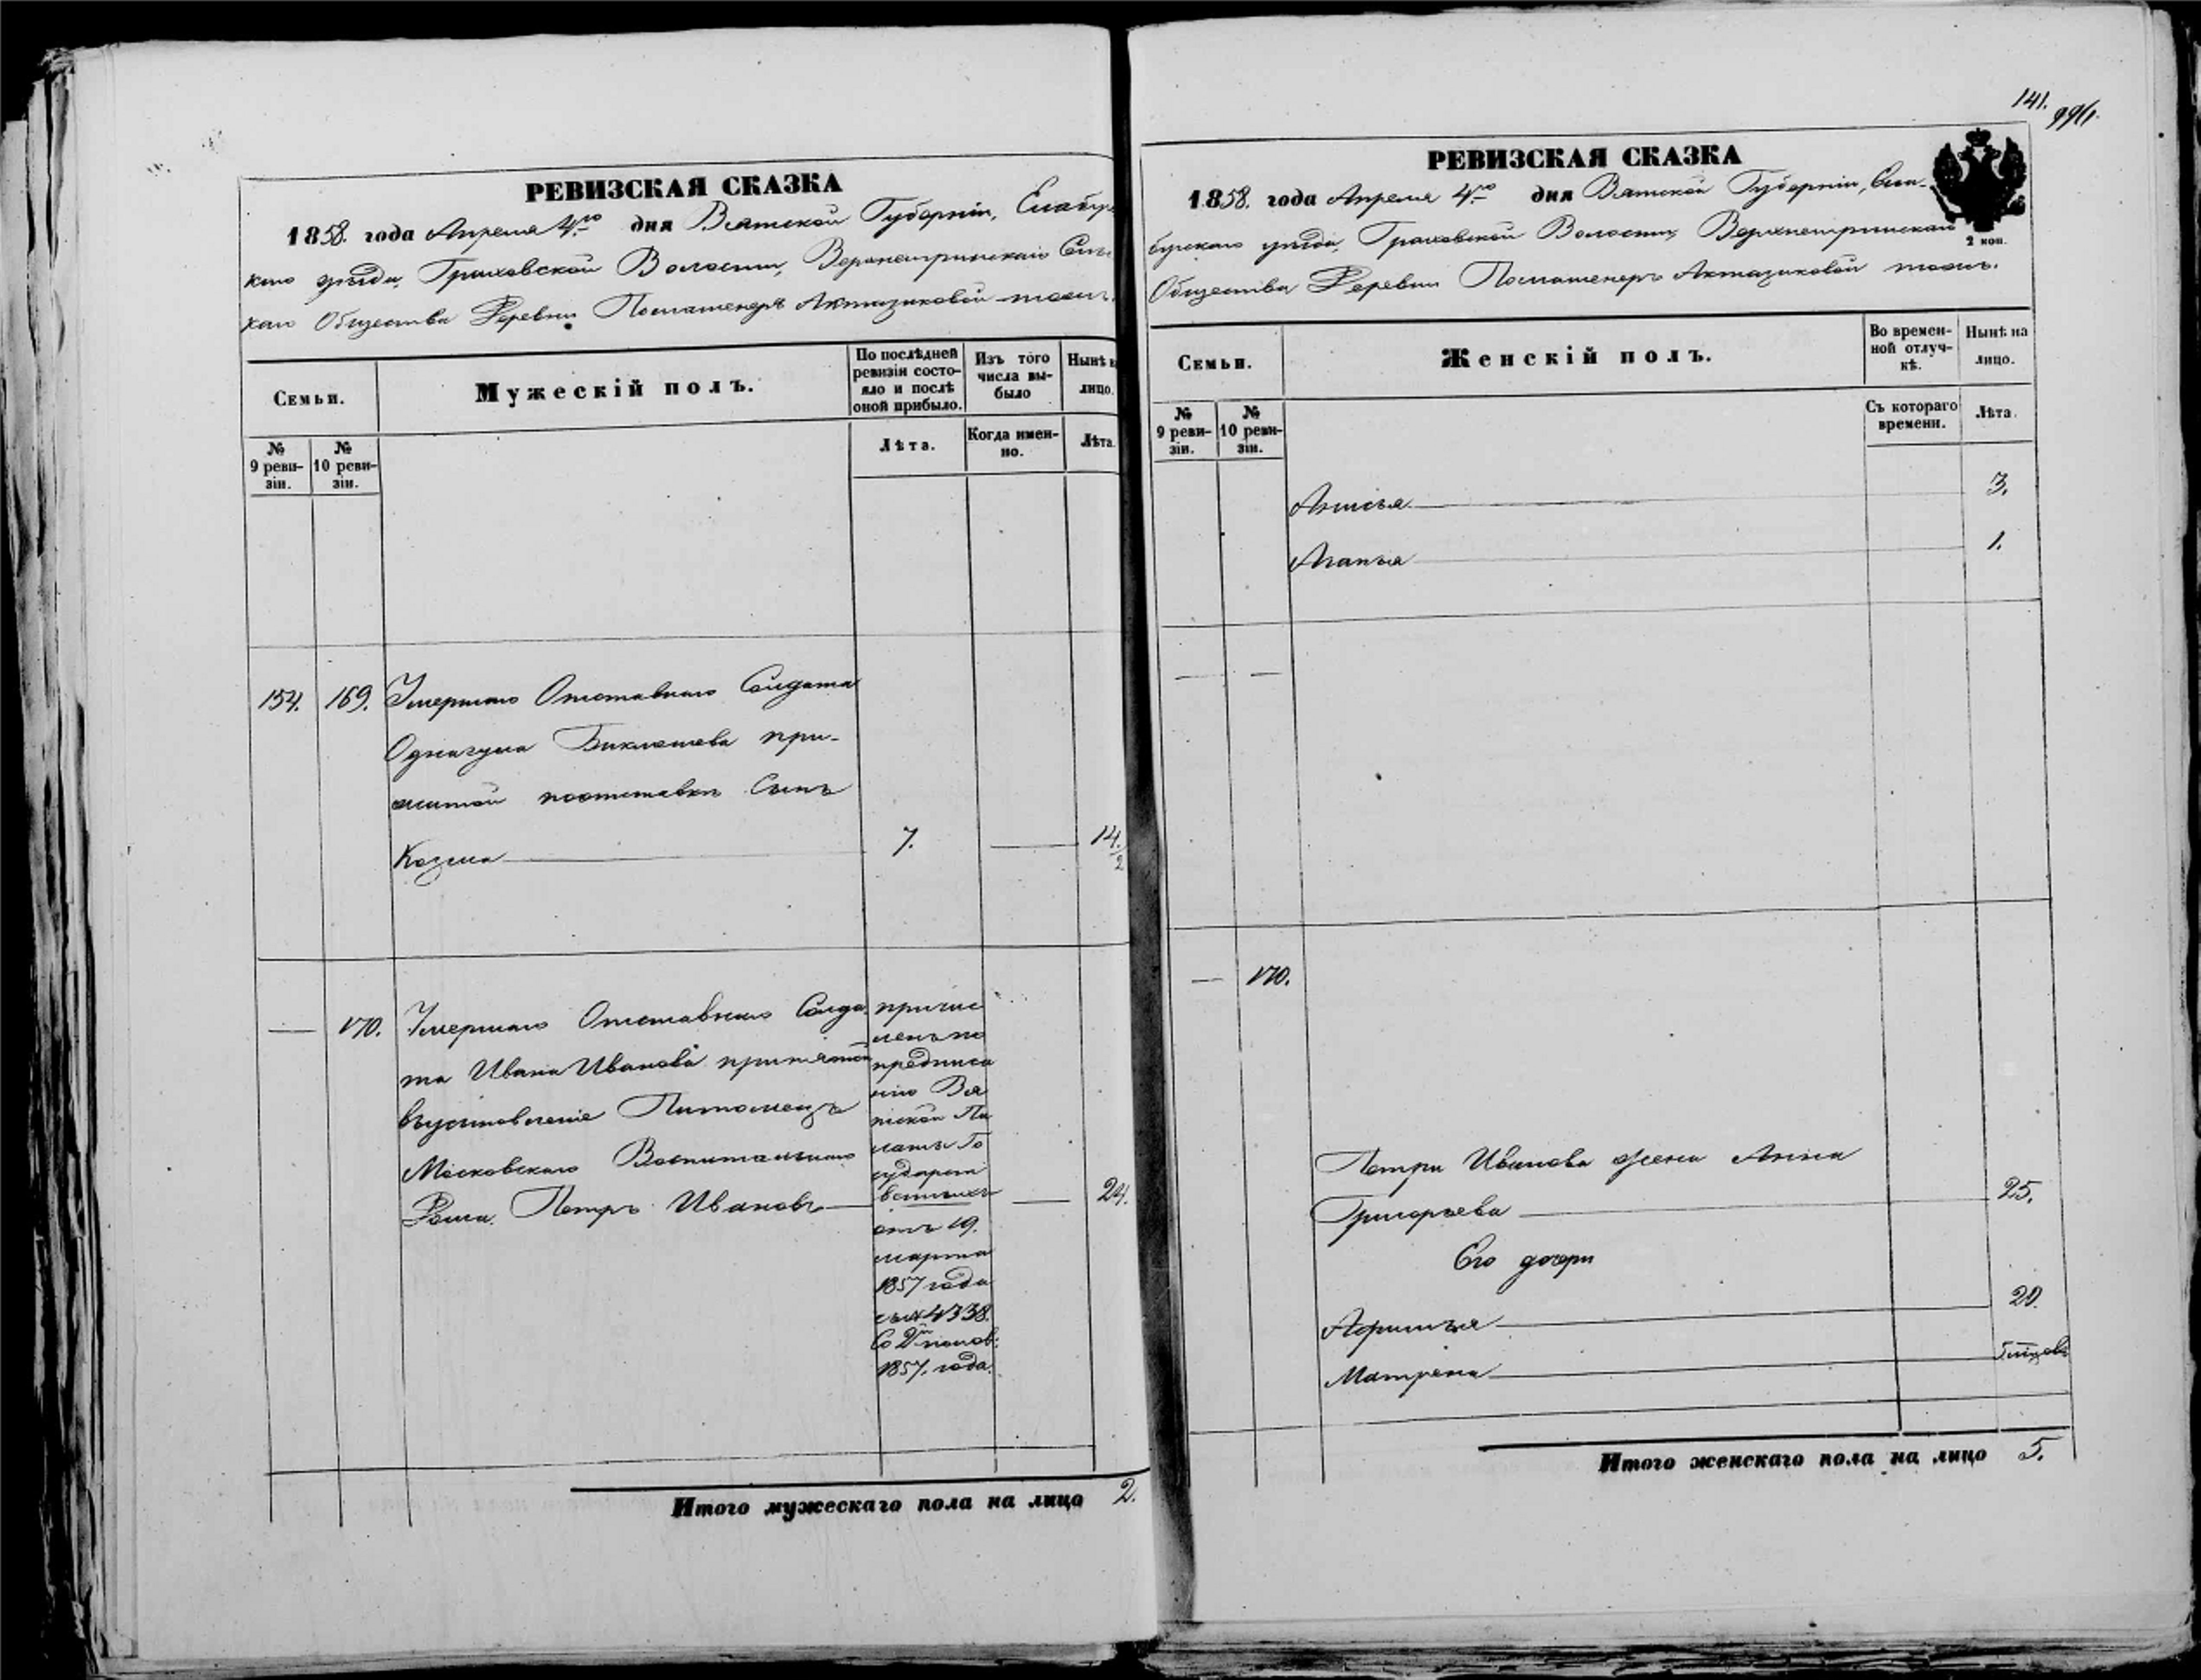 РЕВИЗСКАЯ СКАЗКА
1858. года Апреля 4го дня Вятской Губернiи, Елабуж
каго уѣзда, Граховской Волости, Верхнетринскаго Сель
скаго Общества Деревни Полатенеръ Актазиковой тожъ.
Семьи.
Мужескiй полъ.
По послѣдней ревизiи состояло и послѣ оной прибыло.
Изъ того числа выбыло
Нынѣ на лицо.
№ 9 ревизiи.
№ 10 ревизiи.
Лѣта.
Когда именно.
Лѣта.
154. 169. Умершаго Отставнаго Солдата
Биклешева при-
житой поотставкѣ Сынъ
Козма 7. 14/2
170. Умершаго Отставнаго Солда
та Ивана Иванова принятой
въусыновленiе Питомецъ
Московскаго Воспитательнаго
Дома Петръ Ивановъ 24.
причис
ленъ по
предписа
нiю Вя
тской Па
латы Го
сударст
венныхъ
отъ 19.
марта
1857 года
за № 4338.
Со 2й полов:
1857. года.
Итого мужескаго пола на лицо 2.
141.
996.
РЕВИЗСКАЯ СКАЗКА
1858. года Апреля 4го дня Вятской Губернiи, Ела-
бужскаго уѣзда, Граховской Волости, Верхнетринскаго
Общества Деревни Полатенеръ Актазиковой тожъ.
2 коп.
Семьи.
Женскiй полъ.
Во временной отлучкѣ.
Нынѣ на лицо.
№ 9 ревизiи.
№ 10 ревизiи.
Съ котораго времени.
Лѣта.
Анисья 3.
Агапья 1.
170.
Петра Иванова жена Анна
Григорьева 25.
Его дочери
20.
Матрена
Итого женскаго пола на лицо 5.